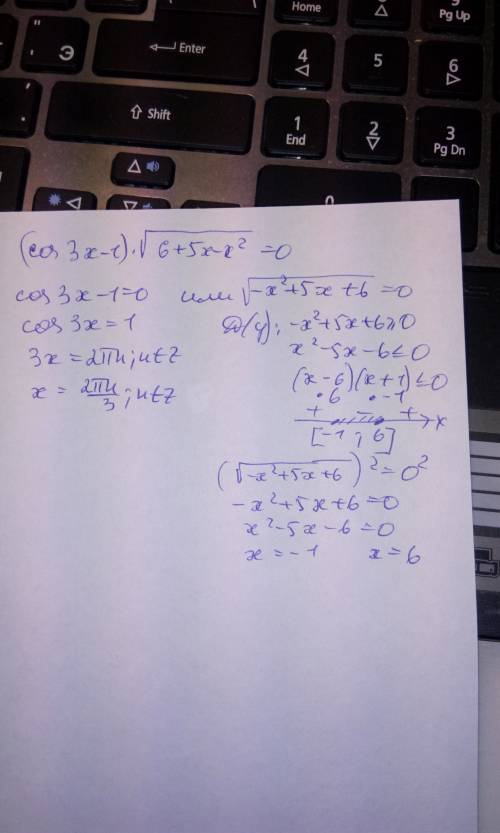 Home
9
Pg Up
" Э
'
Enter
4
5
6
Shift
1
End
2
3
Pg Dn
0
(cos 3x-1)·√6+5x-x² =0
cos 3x-1=0 или √-x²+5x+6 =0
cos 3x=1 D(y): -x²+5x+6≥0
3x=2πn; n∈Z x²-5x-6≤0
x = 2πn/3; n∈Z (x-6)(x+1)≤0
·6 ·-1
+ - + x
[-1; 6]
(√-x²+5x+6)²=0²
-x²+5x+6=0
x²-5x-6=0
x=-1 x=6